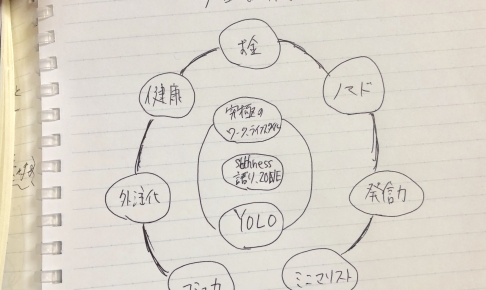 お金
健康
ノマド
究極の
ワーク・ライフスタイル
語り、ZONE
外注化
発信力
YOLO
コミュ力
ミニマリスト